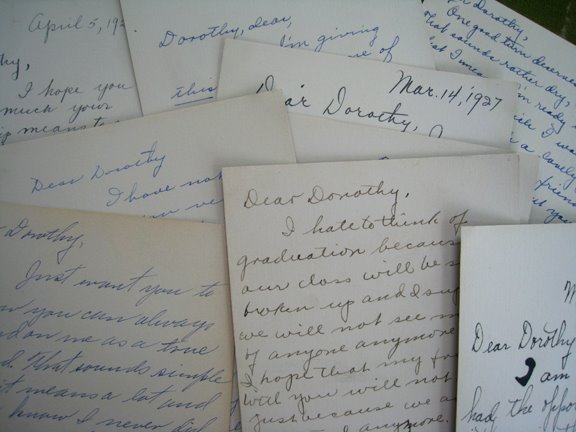 April 5, 19
I hope you
much your
means to
Dorothy, dear,
I'm giving
of
this
Dorothy,
One good turn deserves
that sounds rather dry,
I'm ready
I wa
a lovely
Mar. 14, 1927
Dear Dorothy,
Dear Dorothy
I have not
Dorothy,
Just want you to
you can always
on me as a true
That sounds simple
it means a lot and
know I never did
Dear Dorothy,
I hate to think of
graduation because
our class will be s
broken up and I sup
we will not see m
of anyone anymore
I hope that my fri
with you will not
just because we a
anymore.
Dear Dorothy
I am
had the oppor